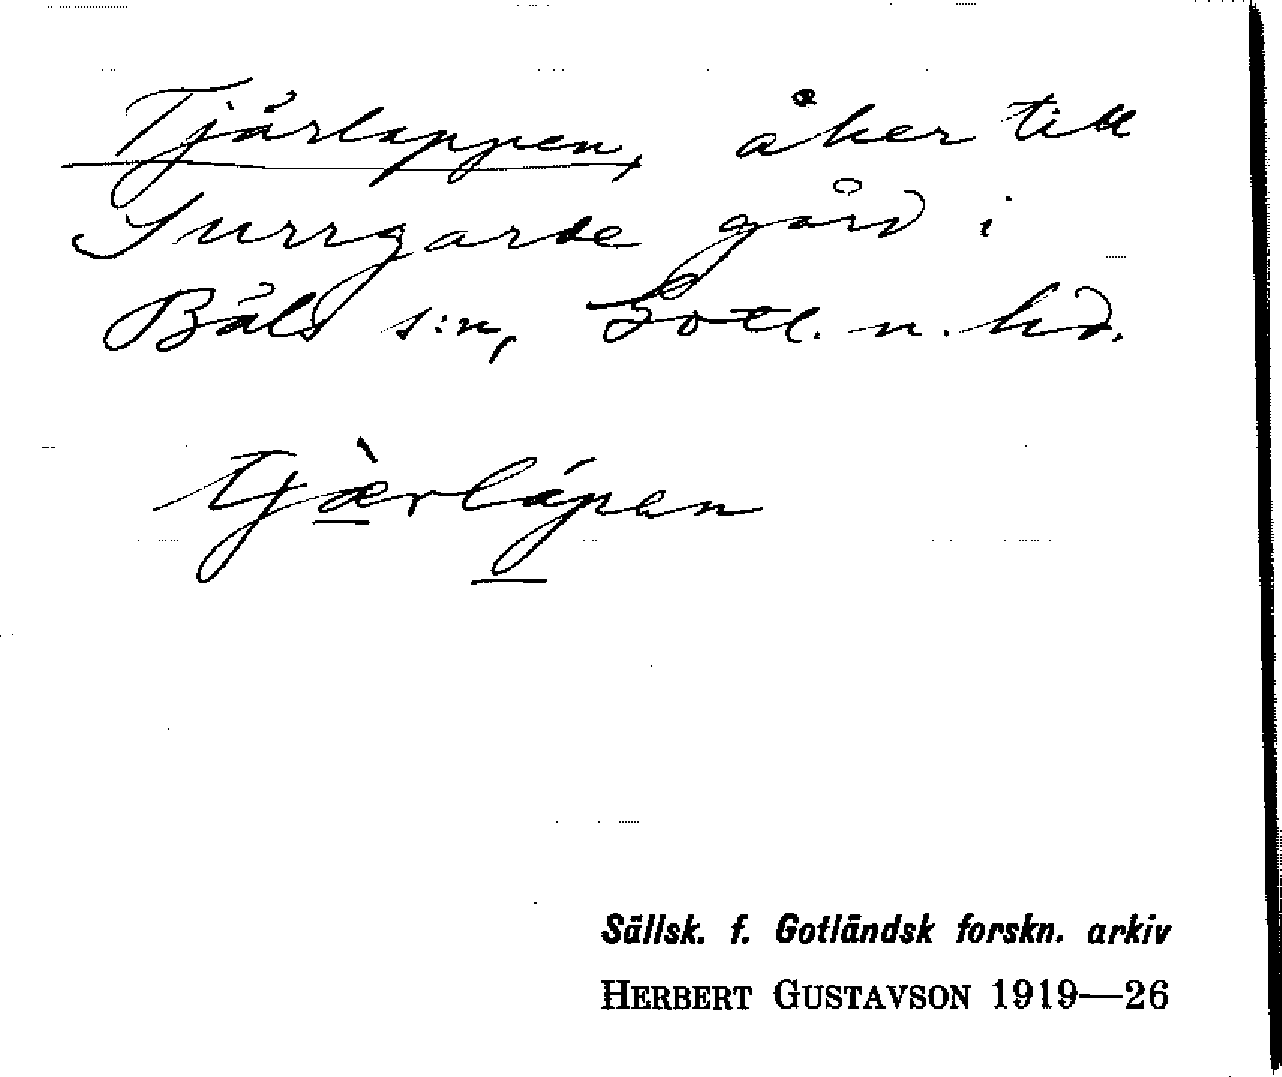 Tjärlappen, åker till
Surrgarde gård i
Bäls s:n, Gotl. n. hd.
tjærlápen
Sällsk. f. Gotländsk forskn. arkiv
HERBERT GUSTAVSON 1919—26